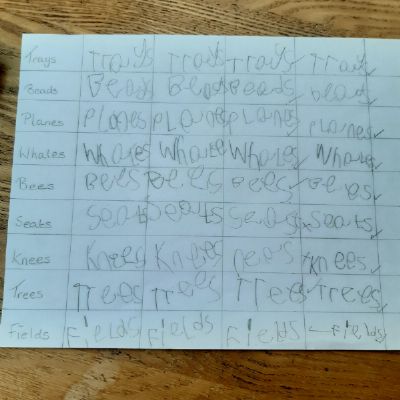 Trays Trays Trays Trays Trays
Beads Beads Beads Beads Beads
Planes Planes Plane Planes Planes
Whales Whales Whale Whales Whale
Bees Bees Bees Bees Bees
Seats Seats Seats Seats Seats
Knees Knees Knees nees Knees
Trees Trees Trees Trees Trees
Fields Fields Fields Fields Fields